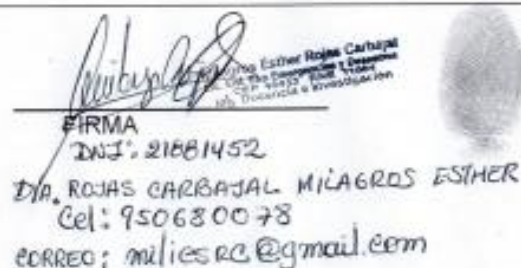 Esther Rojas Carbajal
Docencia e Investigación
FIRMA
DNI: 21881452
DRA. ROJAS CARBAJAL MILAGROS ESTHER
Cel: 950680078
CORREO: miliesRC@gmail.com